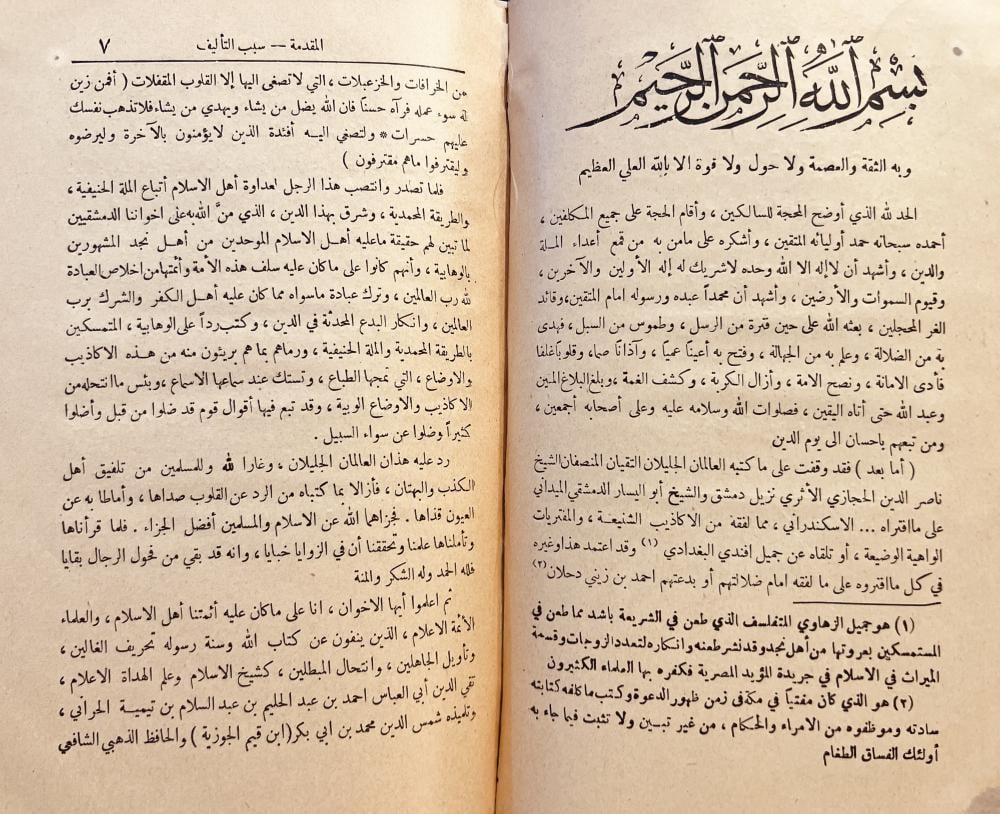 بسم الله الرحمن الرحيم
وبه الثقة والعصمة ولا حول ولا قوة الا بالله العلي العظيم
الحمد لله الذي أوضح المحجة للسالكين ، وأقام الحجة على جميع المكلفين ،
أحمده سبحانه حمد أوليائه المتقين ، وأشكره على مامن به من قمع أعداء الملة
والدين ، وأشهد أن لاإله الا الله وحده لاشريك له إله الأولين والآخرين ،
وقيوم السموات والأرضين ، وأشهد أن محمداً عبده ورسوله امام المتقين، وقائد
الغر المحجلين ، بعثه الله على حين فترة من الرسل ، وطموس من السبل ، فهدى
به من الضلالة ، وعلم به من الجهالة ، وفتح به أعيناً عمياً ، وآذاناً صما، وقلوباً غلفا
فأدى الامانة ، ونصح الامة ، وأزال الكربة ، وكشف الغمة ، وبلغ البلاغ المبين
وعبد الله حتى أتاه اليقين ، فصلوات الله وسلامه عليه وعلى أصحابه أجمعين ،
ومن تبعهم باحسان الى يوم الدين
( أما بعد ) فقد وقفت على ما كتبه العالمان الجليلان التقيان المنصفان الشيخ
ناصر الدين الحجازي الأثري نزيل دمشق والشيخ أبو اليسار الدمشقي الميداني
على ماافتراه ... الاسكندراني ، مما لفقه من الاكاذيب الشنيعة ، والمفتريات
الواهية الوضيعة ، أو تلقاه عن جميل افندي البغدادي (١) وقد اعتمد هذا وغيره
في كل ماافتروه على ما لفقه امام ضلالتهم أو بدعتهم احمد بن زيني دحلان (٢)
(١) هو جميل الزهاوي المتفلسف الذي طعن في الشريعة باشد مما طعن في
المستمسكين بعروتها من أهل نجد وقد نشر طعنه وانكاره لتعدد الزوجات وقسمة
الميراث في الاسلام في جريدة المؤيد المصرية فكفره بها العلماء الكثيرون
(٢) هو الذي كان مفتياً في مكة في زمن ظهور الدعوة وكتب ما كلفه كتابته
سادته وموظفوه من الامراء والحكام ، من غير تبين ولا تثبت فيما جاء به
أولئك الفساق الطغام
المقدمة — سبب التأليف ٧
من الخرافات والخزعبلات ، التي لا تصغى اليها إلا القلوب المقفلات ( أفمن زين
له سوء عمله فرآه حسناً فان الله يضل من يشاء ويهدي من يشاء فلا تذهب نفسك
عليهم حسرات * ولتصغي اليه أفئدة الذين لايؤمنون بالآخرة وليرضوه
وليقترفوا ماهم مقترفون )
فلما تصدر وانتصب هذا الرجل لعداوة أهل الاسلام أتباع الملة الحنيفية ،
والطريقة المحمدية ، وشرق بهذا الدين ، الذي منَّ الله به على اخواننا الدمشقيين
لما تبين لهم حقيقة ماعليه أهل الاسلام الموحدين من أهل نجد المشهورين
بالوهابية ، وأنهم كانوا على ما كان عليه سلف هذه الأمة وأئمتها من اخلاص العبادة
لله رب العالمين ، وترك عبادة ماسواه مما كان عليه أهل الكفر والشرك برب
العالمين ، وانكار البدع المحدثة في الدين ، وكتب رداً على الوهابية ، المتمسكين
بالطريقة المحمدية والملة الحنيفية ، ورماهم بما هم بريئون منه من هذه الاكاذيب
والاوضاع ، التي تمجها الطباع ، وتستك عند سماعها الاسماع ، وبئس ماانتحله من
الاكاذيب والاوضاع الوبية ، وقد تبع فيها أقوال قوم قد ضلوا من قبل وأضلوا
كثيراً وضلوا عن سواء السبيل .
رد عليه هذان العالمان الجليلان ، وغارا لله وللمسلمين من تلفيق أهل
الكذب والبهتان ، فأزالا بما كتباه من الرد عن القلوب صداها ، وأماطا به عن
العيون قذاها . فجزاهما الله عن الاسلام والمسلمين أفضل الجزاء . فلما قرأناها
وتأملناها علمنا وتحققنا أن في الزوايا خبايا ، وانه قد بقي من فحول الرجال بقايا
فلله الحمد وله الشكر والمنة
ثم اعلموا أيها الاخوان ، انا على ماكان عليه أئمتنا أهل الاسلام ، والعلماء
الأئمة الاعلام ، الذين ينفون عن كتاب الله وسنة رسوله تحريف الغالين ،
وتأويل الجاهلين ، وانتحال المبطلين ، كشيخ الاسلام وعلم الهداة الاعلام ،
تقي الدين أبي العباس احمد بن عبد الحليم بن عبد السلام بن تيمية الحراني ،
وتلميذه شمس الدين محمد بن ابي بكر (ابن قيم الجوزية ) والحافظ الذهبي الشافعي